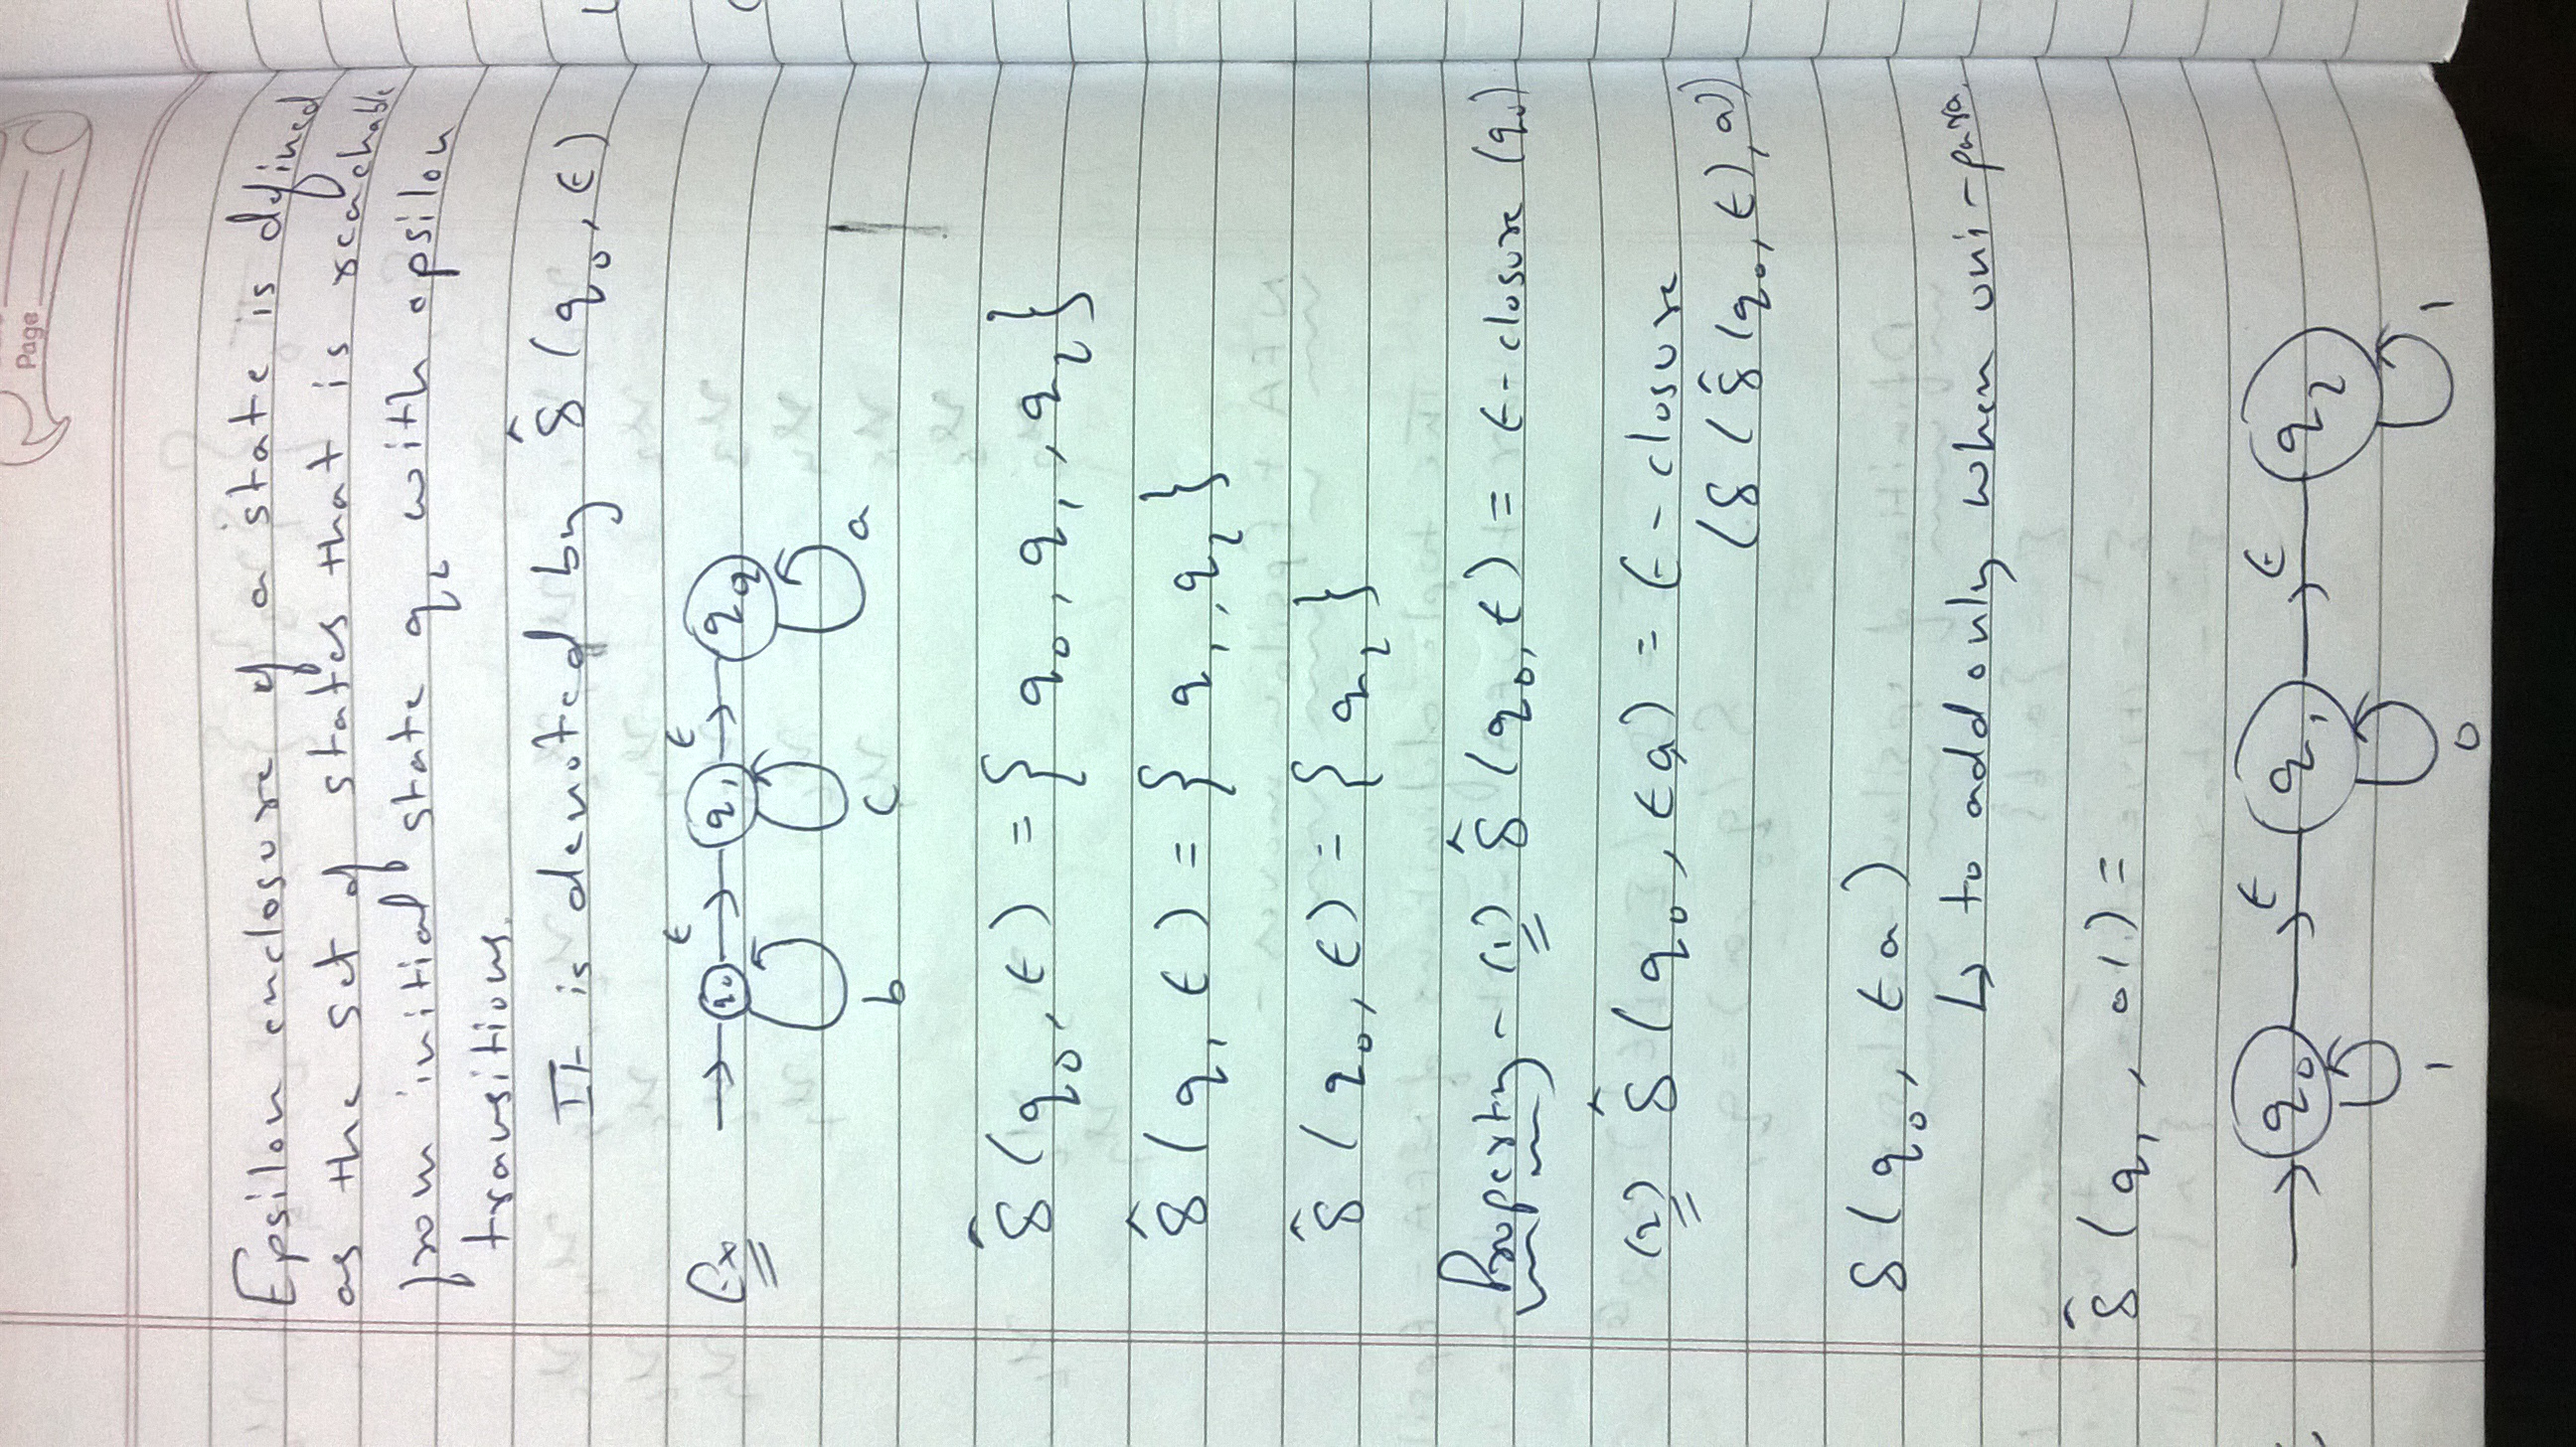 Page
Epsilon enclosure of a state is defined
as the set of states that is reachable
from initial state q₂ with epsilon
transitions.
It is denoted by δ̂ (q₀, ε)
Ex
q₀ ε q₁ ε q₂
b c a
δ̂ (q₀, ε) = { q₀, q₁, q₂ }
δ̂ (q₁ ε) = { q₁, q₂ }
δ̂ (q₀, ε) = { q₂ }
Property - (1) δ̂ (q₀, ε) = ε-closure (q₀)
(2) δ̂ (q₀, εa) = ε-closure
(δ (δ̂ (q₀, ε), a))
δ (q₀, εa)
↳ to add only when uni-para.
δ̂ (q₁, 01) =
q₀ ε q₁ ε q₂
1 0 1